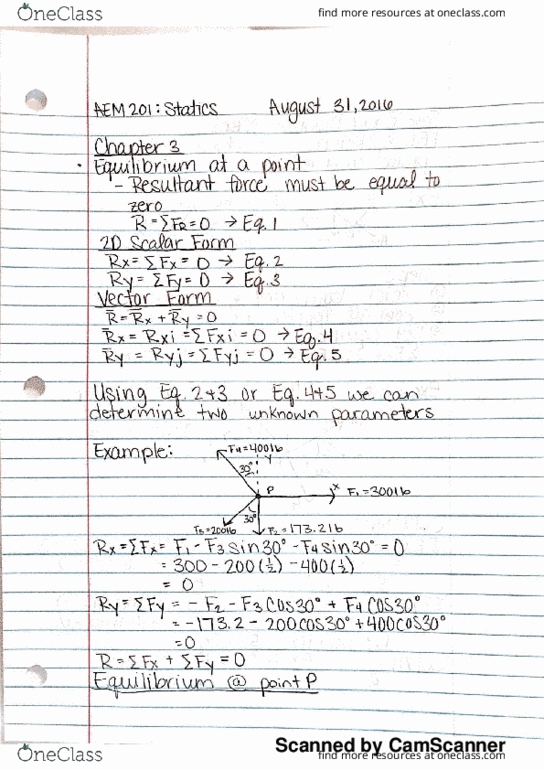 OneClass
find more resources at oneclass.com
AEM 201: Statics August 31, 2016
Chapter 3
• Equilibrium at a point
- Resultant force must be equal to
zero
R = ΣFR = 0 → Eq. 1
2D Scalar Form
Rx = ΣFx = 0 → Eq. 2
Ry = ΣFy = 0 → Eq. 3
Vector Form
R̄ = R̄x + R̄y = 0
R̄x = Rxi = ΣFxi = 0 → Eq. 4
R̄y = Ryj = ΣFyj = 0 → Eq. 5
Using Eq. 2+3 or Eq. 4+5 we can
determine two unknown parameters
Example:
F4=400lb
y
30°
P
x
F1=300lb
30°
F3=200lb
F2=173.2lb
Rx = ΣFx = F1 - F3 sin30° - F4 sin30° = 0
= 300 - 200(1/2) - 400(1/2)
= 0
Ry = ΣFy = - F2 - F3 cos30° + F4 cos30°
= -173.2 - 200cos30° + 400cos30°
= 0
R = ΣFx + ΣFy = 0
Equilibrium @ point P
Scanned by CamScanner
OneClass
find more resources at oneclass.com